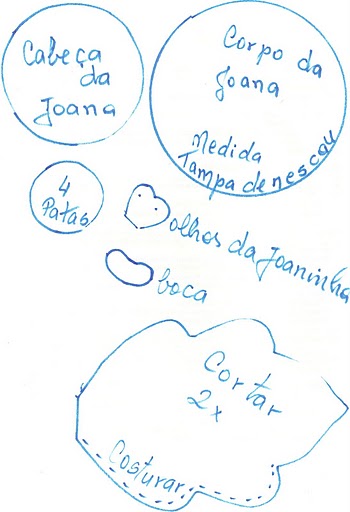 Cabeça
da
Joana
Corpo da
Joana
Medida
Tampa de nescau
4
Patas
olhos da Joaninha
boca
Cortar
2x
Costurar